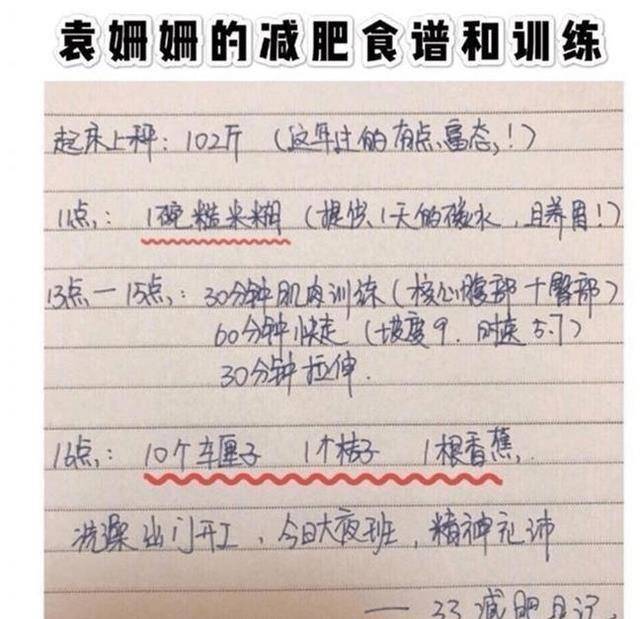 袁姗姗的减肥食谱和训练
起床上秤：102斤（这年过的有点富态！）
11点：1碗糙米糊（提供1天的碳水，且养胃！）
13点－15点：30分钟肌肉训练（核心腹部＋臀部）
60分钟快走（坡度9.时速5.7）
30分钟拉伸.
16点：10个车厘子 1个桔子 1根香蕉.
洗澡出门开工，今日大夜班，精神充沛
——33减肥日记.